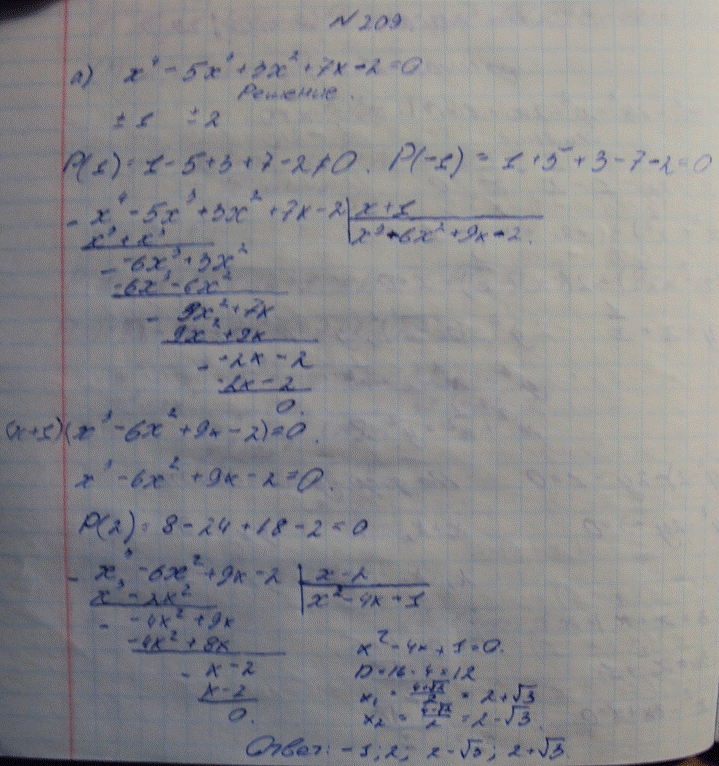 N 209
а) x⁴ - 5x³ + 3x² + 7x - 2 = 0
Решение.
± 1 ± 2
P(1) = 1 - 5 + 3 + 7 - 2 ≠ 0. P(-1) = 1 + 5 + 3 - 7 - 2 = 0
- x⁴ - 5x³ + 3x² + 7x - 2 | x + 1
x⁴ + x³ | x³ - 6x² + 9x - 2.
- -6x³ + 3x²
-6x³ - 6x²
- 9x² + 7x
9x² + 9x
- -2x - 2
-2x - 2
0.
(x+1)(x³ - 6x² + 9x - 2) = 0.
x³ - 6x² + 9x - 2 = 0.
P(2) = 8 - 24 + 18 - 2 = 0
- x³ - 6x² + 9x - 2 | x - 2
x³ - 2x² | x² - 4x + 1
- -4x² + 9x
-4x² + 8x
- x - 2
x - 2
0.
x² - 4x + 1 = 0.
D = 16 - 4 = 12
x₁ = (4+√12)/2 = 2 + √3
x₂ = (4-√12)/2 = 2 - √3.
Ответ: -1; 2; 2 - √3; 2 + √3.